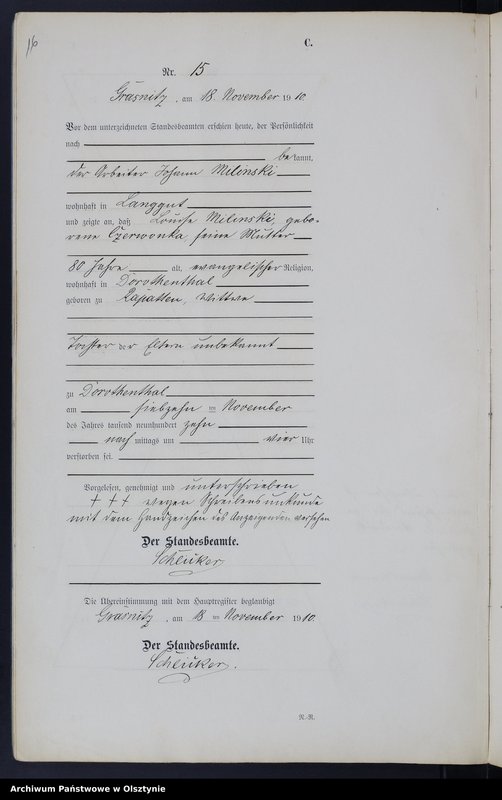 16
C.
Nr. 15
Grasnitz, am 18. November 1910.
Vor dem unterzeichneten Standesbeamten erschien heute, der Persönlichkeit
nach
bekannt,
der Arbeiter Johann Milinski
wohnhaft in Langgut
und zeigte an, daß Louise Milinski, gebo-
rene Czerwonka, seine Mutter
80 Jahre alt, evangelischer Religion,
wohnhaft in Dorothenthal
geboren zu Rapatten, Wittwe
Tochter der Eltern unbekannt
zu Dorothenthal
am siebzehnten November
des Jahres tausend neunhundert zehn
nachmittags um vier Uhr
verstorben sei.
Vorgelesen, genehmigt und unterschrieben
+ + + wegen Schreibensunkunde
mit dem Handzeichen des Anzeigenden versehen
Der Standesbeamte.
Die Übereinstimmung mit dem Hauptregister beglaubigt
Grasnitz, am 18ten November 1910.
Der Standesbeamte.
R.-R.
Archiwum Państwowe w Olsztynie